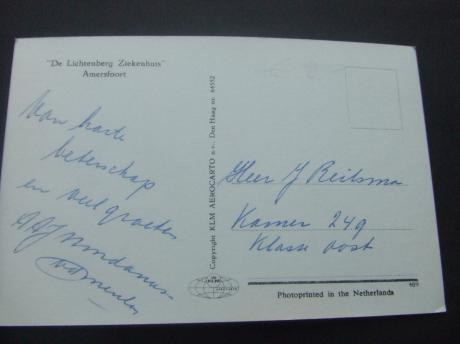 "De Lichtenberg Ziekenhuis"
Amersfoort
Van harte
beterschap
en veel groeten
Copyright KLM AEROCARTO n.v., Den Haag nr. 64552
Heer J Reitsma
Kamer 249
Klasse oost
Photoprinted in the Netherlands